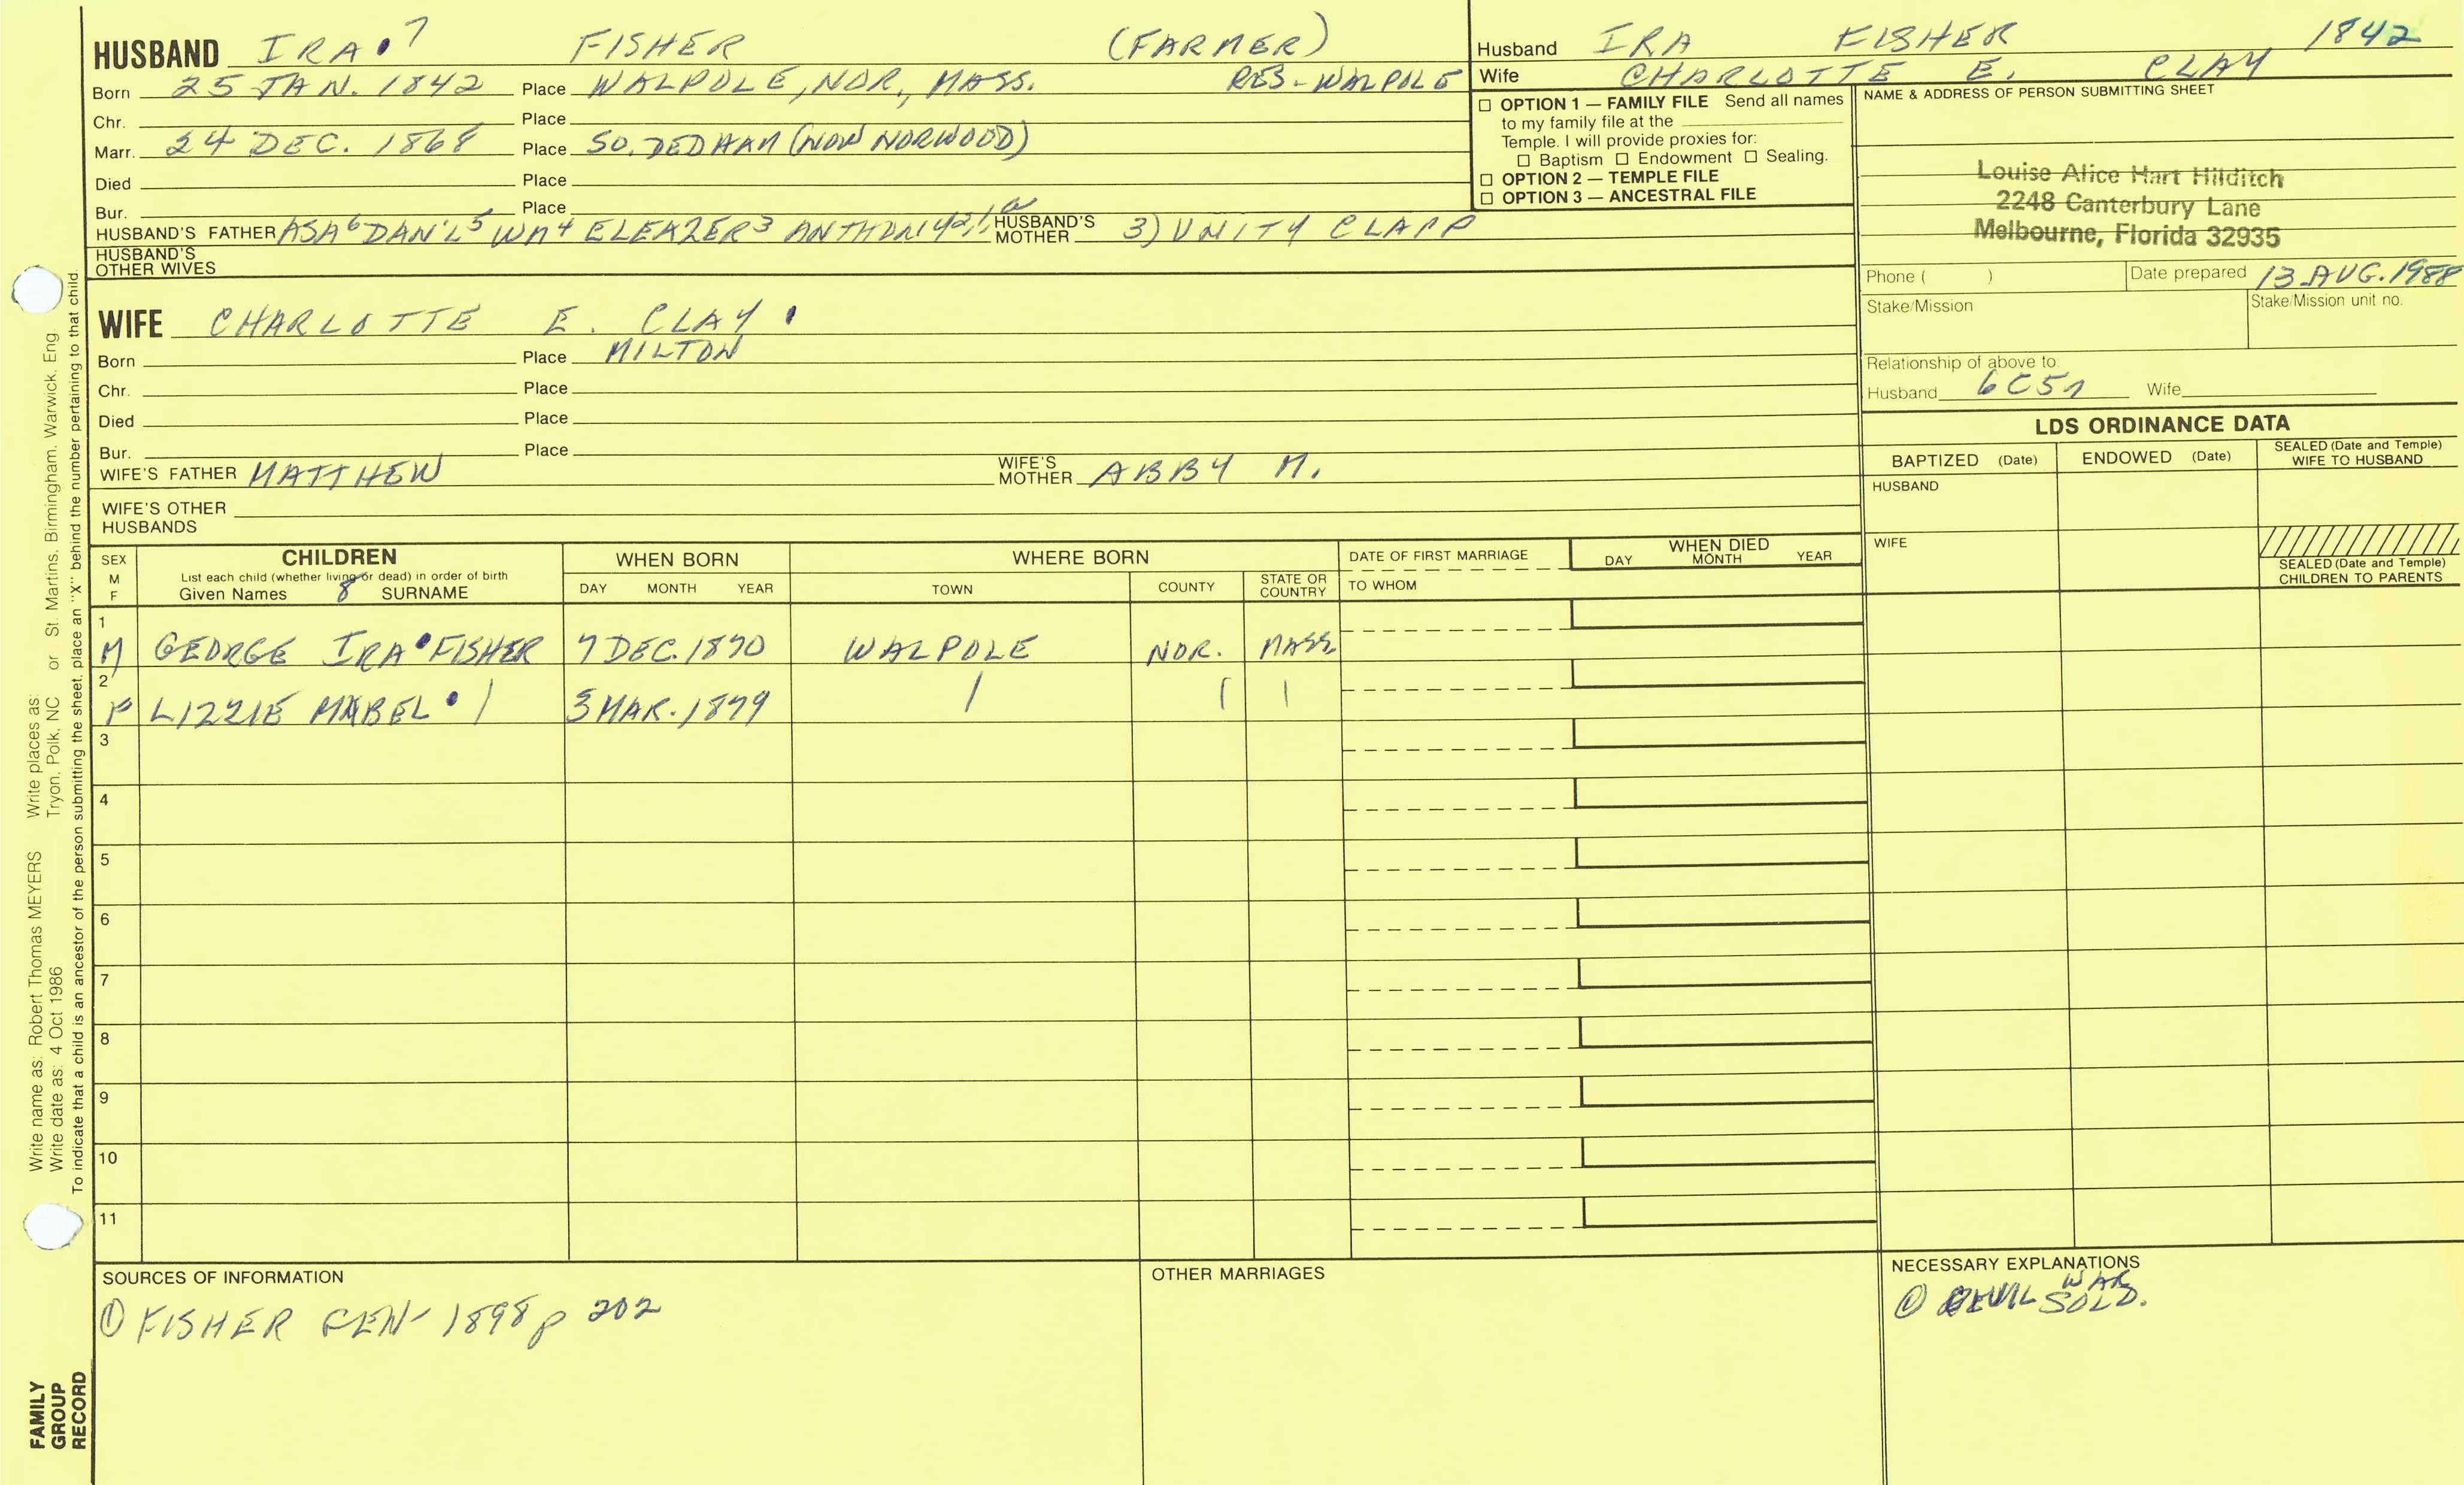 HUSBAND IRA 7 FISHER (FARMER)
Born 25 JAN. 1842 Place WALPOLE, NOR., MASS. RES-WALPOLE
Chr. Place
Marr. 24 DEC. 1868 Place SO. DEDHAM (NOW NORWOOD)
Died Place
Bur. Place
HUSBAND'S FATHER ASA6 DAN'L5 WM4 ELEAZER3 ANTHONY2,1 HUSBAND'S MOTHER 3) UNITY CLAPP
HUSBAND'S OTHER WIVES
Husband IRA FISHER 1842
Wife CHARLOTTE E. CLAY
☐ OPTION 1 — FAMILY FILE Send all names
to my family file at the
Temple. I will provide proxies for:
☐ Baptism ☐ Endowment ☐ Sealing.
☐ OPTION 2 — TEMPLE FILE
☐ OPTION 3 — ANCESTRAL FILE
NAME & ADDRESS OF PERSON SUBMITTING SHEET
Louise Alice Hart Hilditch
2248 Canterbury Lane
Melbourne, Florida 32935
Phone ( ) Date prepared 13 AUG. 1988
Stake/Mission Stake/Mission unit no.
Relationship of above to:
Husband 6C5r Wife
WIFE CHARLOTTE E. CLAY
Born Place MILTON
Chr. Place
Died Place
Bur. Place
WIFE'S FATHER MATTHEW WIFE'S MOTHER ABBY M.
WIFE'S OTHER HUSBANDS
LDS ORDINANCE DATA
BAPTIZED (Date) ENDOWED (Date) SEALED (Date and Temple) WIFE TO HUSBAND
HUSBAND
WIFE
SEALED (Date and Temple) CHILDREN TO PARENTS
SEX M F CHILDREN WHEN BORN WHERE BORN DATE OF FIRST MARRIAGE WHEN DIED
List each child (whether living or dead) in order of birth
Given Names 8 SURNAME DAY MONTH YEAR TOWN COUNTY STATE OR COUNTRY TO WHOM DAY MONTH YEAR
1 M GEORGE IRA FISHER 7 DEC. 1870 WALPOLE NOR. MASS
2 F LIZZIE MABEL 3 MAR. 1879
3
4
5
6
7
8
9
10
11
SOURCES OF INFORMATION
① FISHER GEN 1898 p 202
OTHER MARRIAGES
NECESSARY EXPLANATIONS
① CIVIL WAR SOLD.
Write name as: Robert Thomas MEYERS Write places as: St. Martins, Birmingham, Warwick, Eng
Write date as: 4 Oct 1986 Tryon, Polk, NC or
To indicate that a child is an ancestor of the person submitting the sheet, place an "X" behind the number pertaining to that child.
FAMILY
GROUP
RECORD